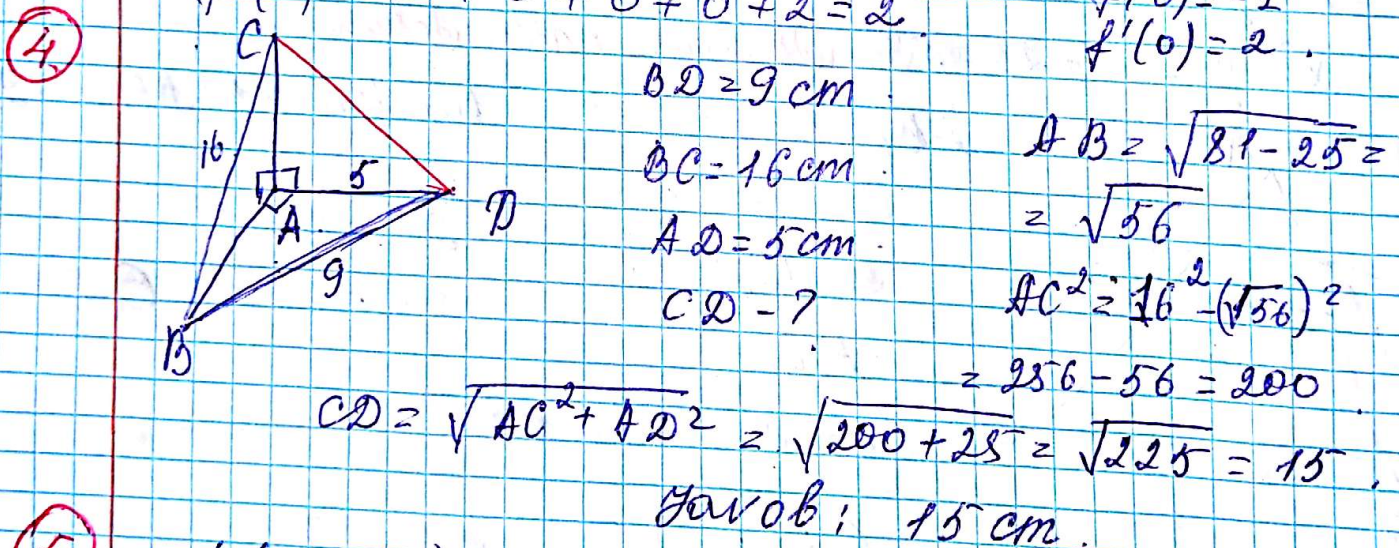 0 + 0 + 2 = 2
f'(0) = 2 .
4.
C
16
5
A
D
9
B
BD = 9 cm
BC = 16 cm
AD = 5 cm
CD - ?
AB = √81 - 25 =
= √56
AC² = 16² - (√56)² =
= 256 - 56 = 200 .
CD = √AC² + AD² = √200 + 25 = √225 = 15 .
Javob : 15 cm .